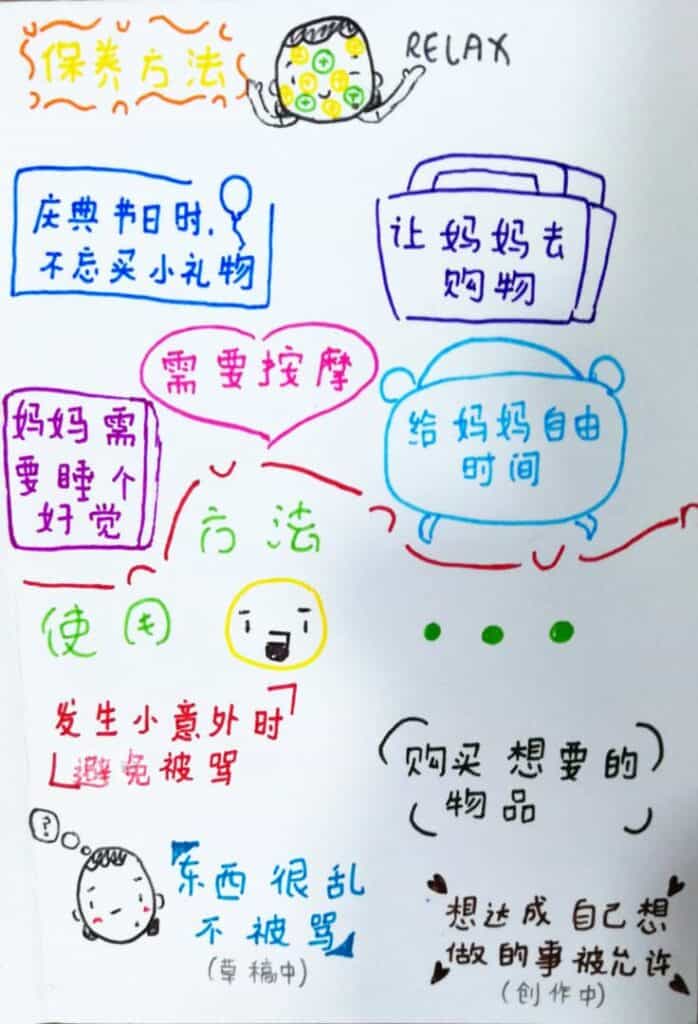 保养方法
RELAX
庆典节日时,
不忘买小礼物
让妈妈去
购物
需要按摩
妈妈需
要睡个
好觉
给妈妈自由
时间
使用
方法
发生小意外时
避免被骂
购买想要的
物品
?
东西很乱
不被骂
(草稿中)
想达成自己想
做的事被允许
(创作中)